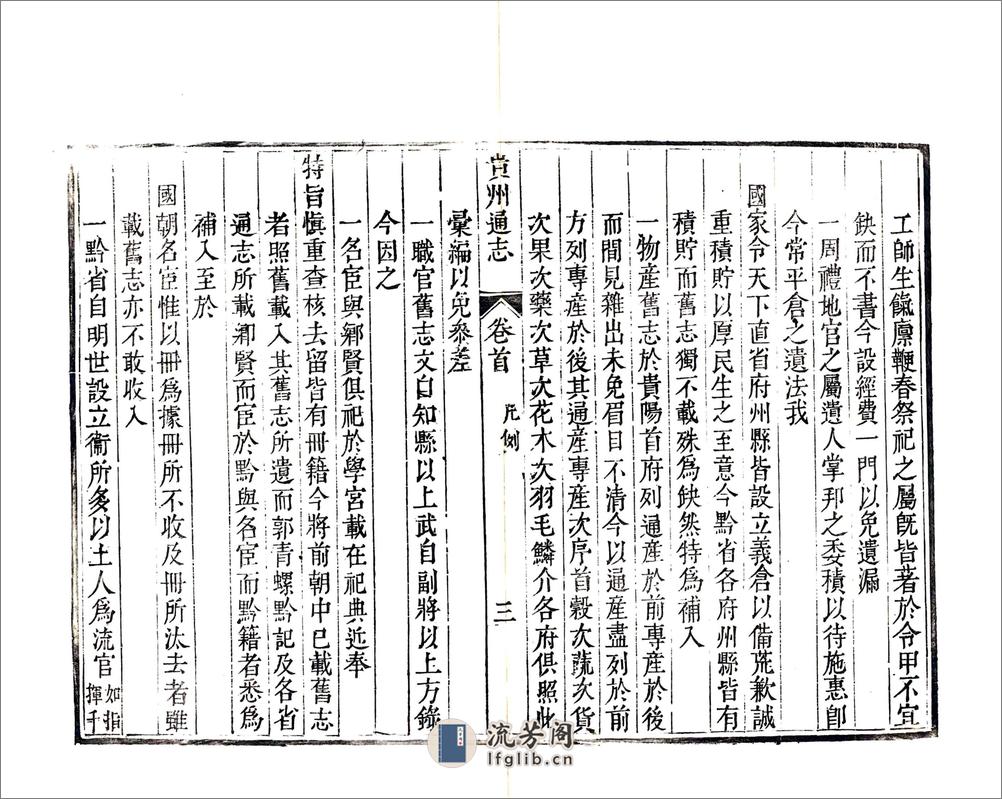 工師生餼廩鞭春祭祀之屬旣皆著於令甲不宜
鈌而不書今設經費一門以免遺漏
一周禮地官之屬遺人掌邦之委積以待施惠卽
今常平倉之遺法我
國家令天下直省府州縣皆設立義倉以備荒歉誠
重積貯以厚民生之至意今黔省各府州縣皆有
積貯而舊志獨不載殊爲鈌然特爲補入
一物産舊志於貴陽首府列通産於前專産於後
而間見雜出未免眉目不清今以通産盡列於前
方列專産於後其通産專産次序首穀次蔬次貨
次果次藥次草次花木次羽毛鱗介各府俱照此
貴州通志 卷首 凡例 三
彙編以免參差
一職官舊志文自知縣以上武自副將以上方錄
今因之
一名宦與鄉賢俱祀於學宮載在祀典近奉
特旨愼重查核去留皆有冊籍今將前朝中已載舊志
者照舊載入其舊志所遺而郭青螺黔記及各省
通志所載鄉賢而宦於黔與名宦而黔籍者悉爲
補入至於
國朝名宦惟以冊爲據冊所不收及冊所汰去者雖
載舊志亦不敢收入
一黔省自明世設立衞所多以土人爲流官如指揮千
流芳阁
lfglib.cn